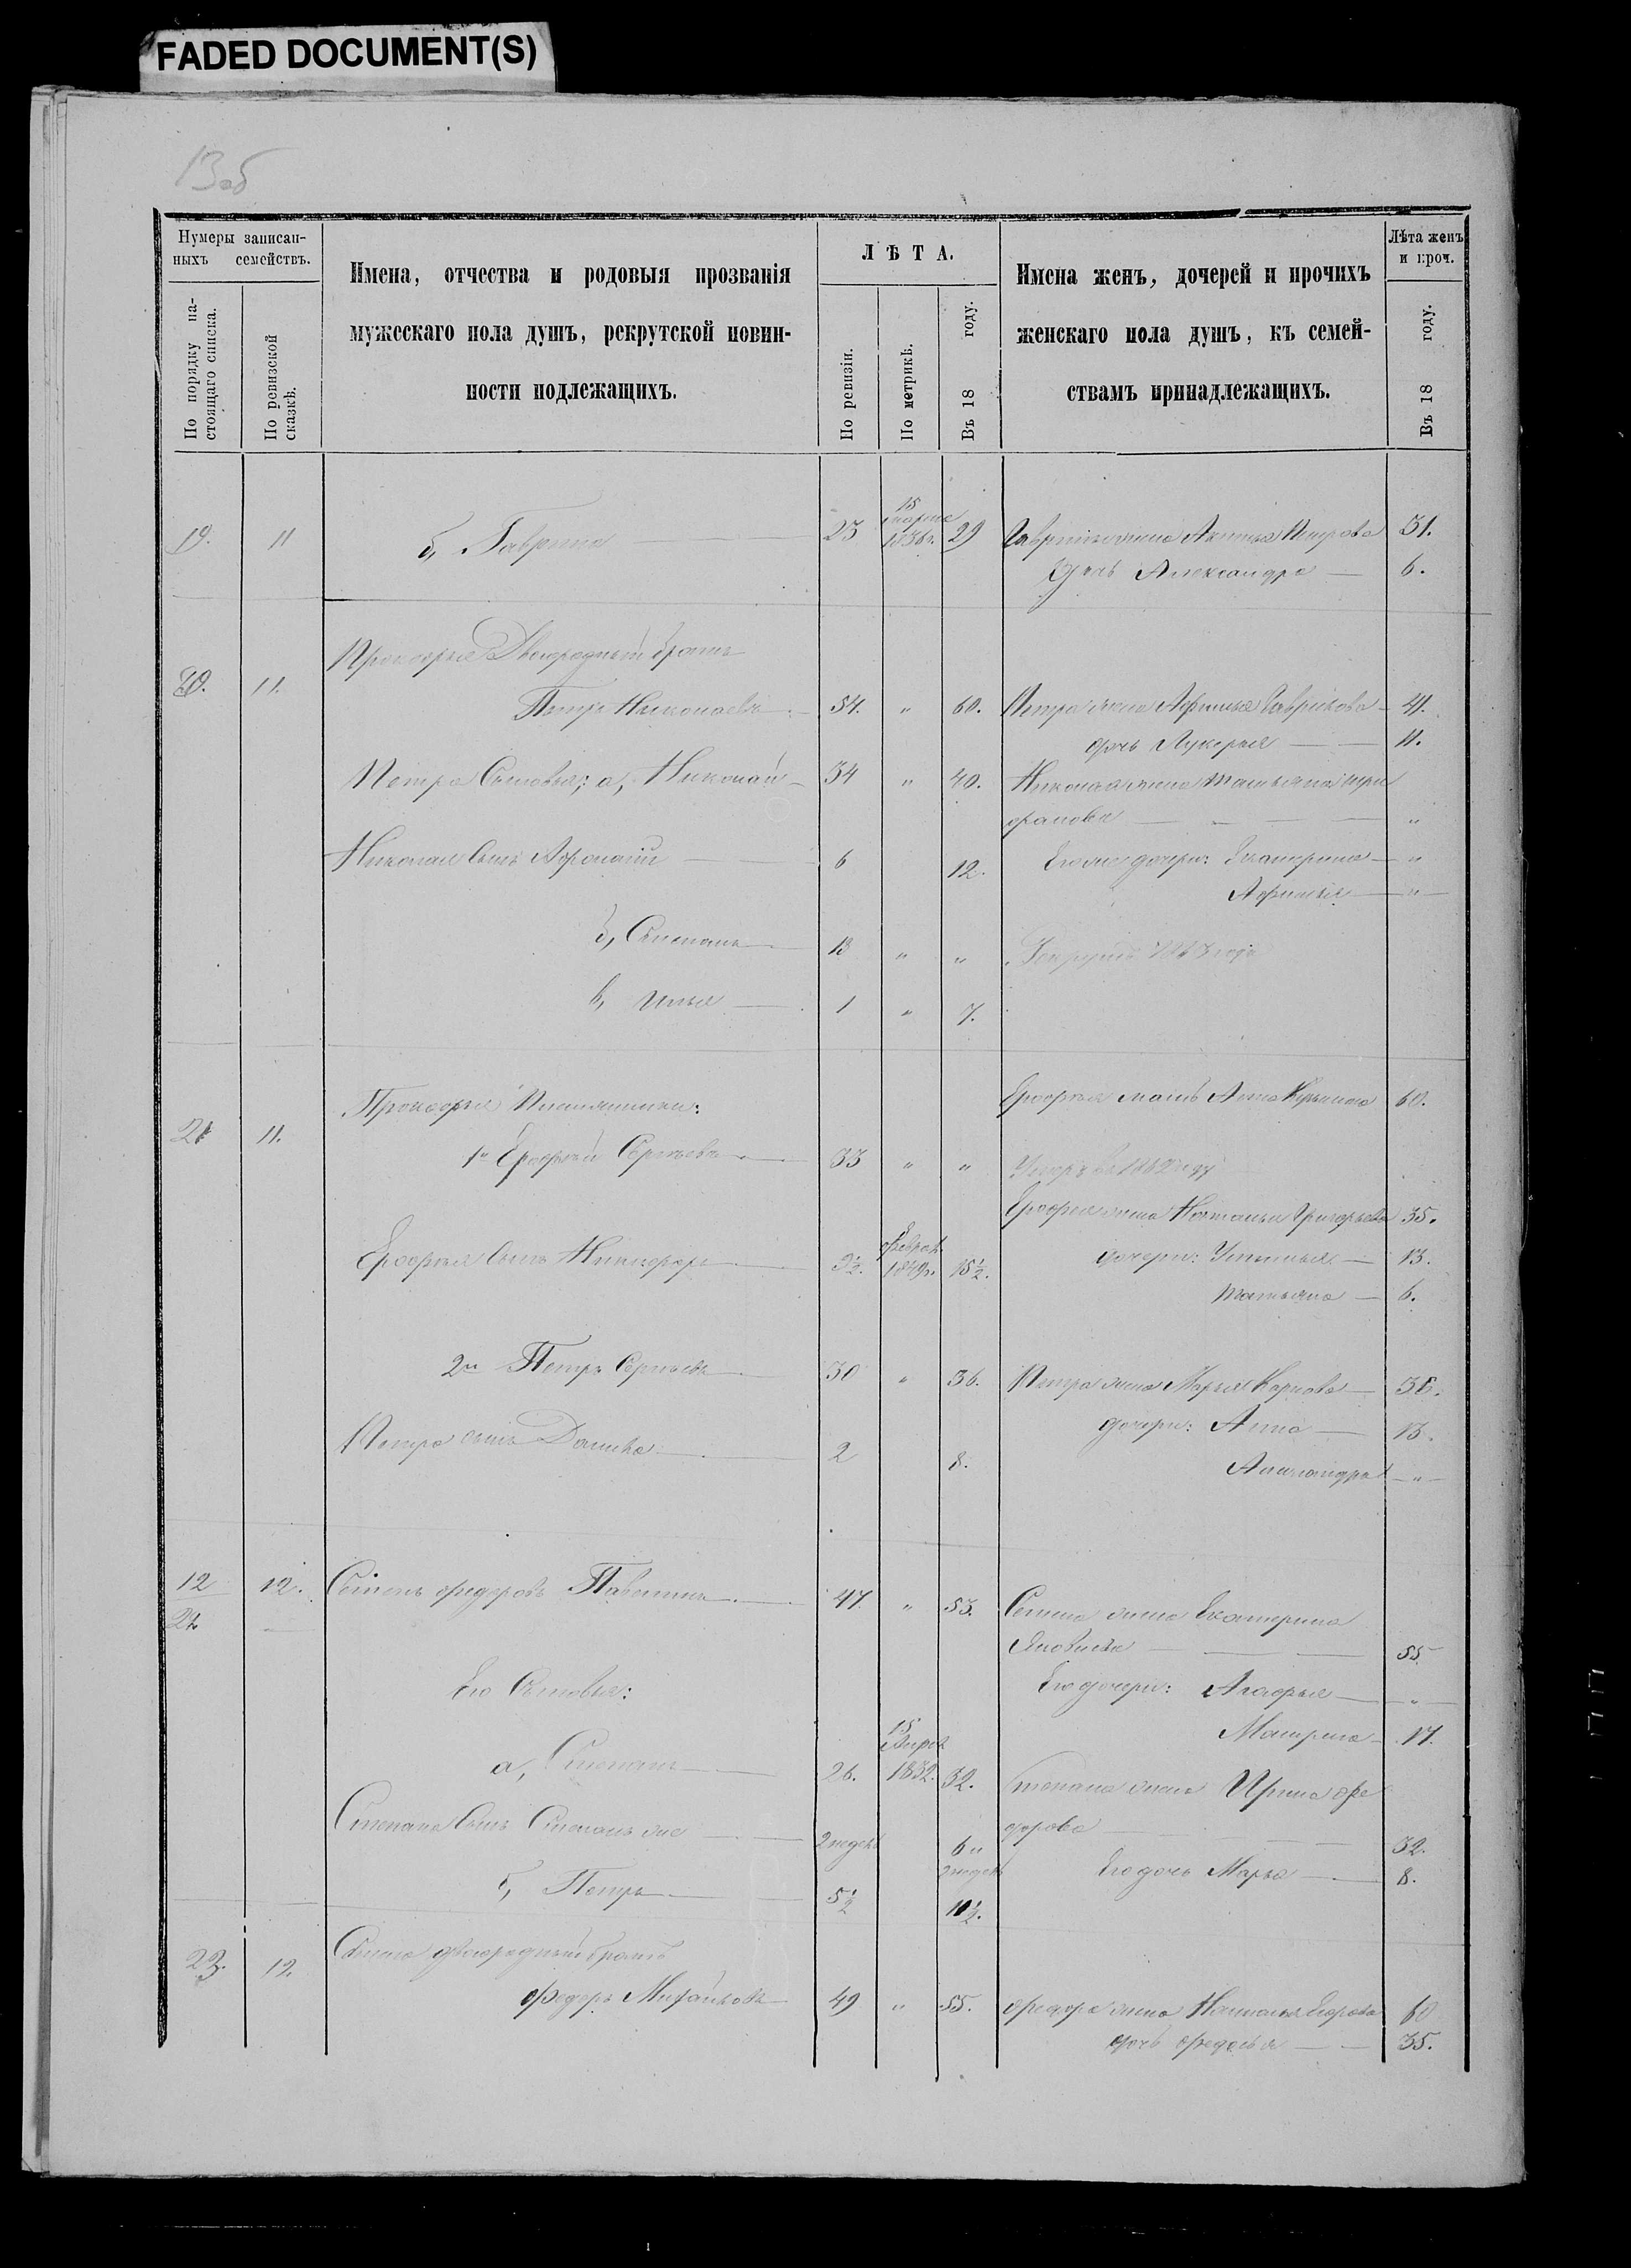 FADED DOCUMENT(S)
13об
Нумеры записан-
ныхъ семействъ.
По порядку на-
стоящаго списка.
По ревизской
сказкѣ.
Имена, отчества и родовыя прозванія
мужескаго пола душъ, рекрутской повин-
ности подлежащихъ.
ЛѢТА.
По ревизіи.
По метрикѣ.
Въ 18 году.
Имена женъ, дочерей и прочихъ
женскаго пола душъ, къ семей-
ствамъ принадлежащихъ.
Лѣта женъ
и проч.
Въ 18 году.
19. 11 б, Гаврила 23 15 марта 1836г. 29 Гаврилы жена Аксинья Петрова 31.
дочь Александра 6.
Прокофья Двоюродный братъ
20. 11. Петръ Николаевъ 54. " 60. Петра жена Афимья Гаврилова 41.
дочь Лукерья 11.
Петра Сыновья: а, Николай 34 " 40. Николая жена Татьяна
"
Николая Сынъ Афонасий 6 12. Его же дочери: Екатерина "
Афимья "
б, Степанъ 13 " "
в, Илья 1 " 7.
Прокофья Племянники: Ерофея мать Анна 60.
21 11. 1й Ерофей Сергѣевъ 33 " " Умеръ въ 1862 году
Ерофея жена Наталья Григорьева 35.
Ерофея Сынъ Никифоръ 9½. Февраля 1849г. 15½. дочери: Устинья 13.
Татьяна 6.
2й Петръ Сергѣевъ 30 " 36. Петра жена Марья Карпова 36.
дочери: Анна 13.
Петра сынъ Данила 2 8. Александра "
12 12. Семенъ Федоровъ 47. " 53. Семена жена Екатерина
22
Яковлева 55
Его Сыновья: Его дочери: Агафья "
Матрена 17.
а, Степанъ 26. 15 Апрѣ 1832. 32. Степана жена Ирина Фе
дорова 32.
Степана Сынъ Степанъ же 2 недѣл 6 " 2 недѣл Его дочь Марья 8.
б, Петръ 5½ 11½.
Семена двоюродный братъ
23. 12. Федоръ Михайловъ 49 " 55. Федора жена Наталья Егорова 60
дочь Федосья 35.